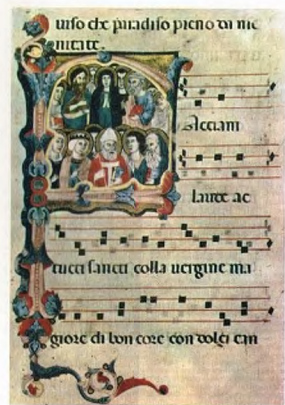 uiso che paradiso pieno di
nitate.
Acciam
laude ac
tucti sancti colla uergine ma
giore di bon core con dolci can